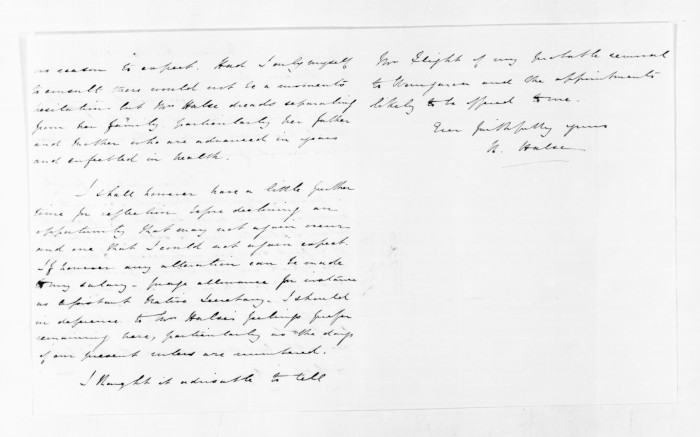 no reason to expect. Had I only myself
to consult there would not be a moments
hesitation but Mrs Halse dreads separating
from her family, particularly her father
and mother who are advanced in years
and enfeebled in health.
I shall however have a little further
time for reflection before declining an
opportunity that may not again occur
and one that I could not again expect.
If however any alteration can be made
to my salary - forage allowance for instance
as Assistant Native Secretary - I should
in deference to Mrs Halse's feelings prefer
remaining here, particularly as the days
of our present rulers are numbered.
I thought it advisable to tell
Mr Flight of my probable removal
to Wanganui and the appointments
likely to be offered to me.
Ever faithfully yours
H. Halse